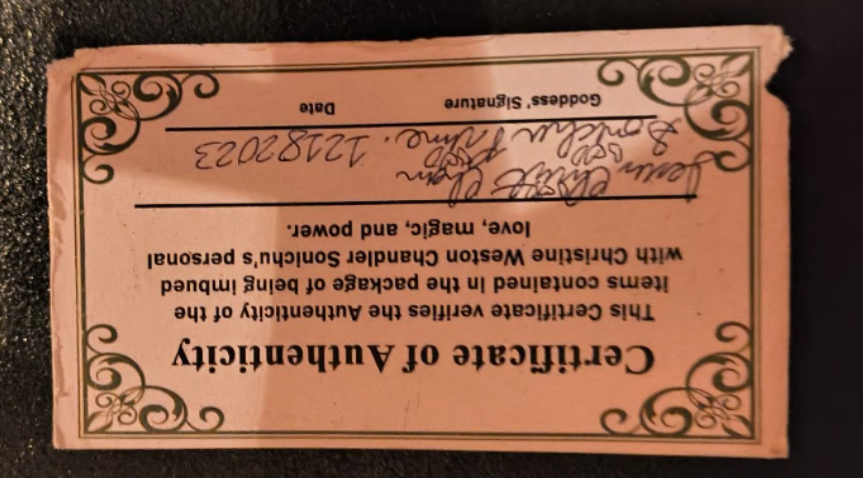 Certificate of Authenticity
This Certificate verifies the Authenticity of the
items contained in the package of being imbued
with Christine Weston Chandler Sonichu's personal
love, magic, and power.
Jesus Christ Chan
Sonichu Prime. 12182023
Goddess' Signature Date